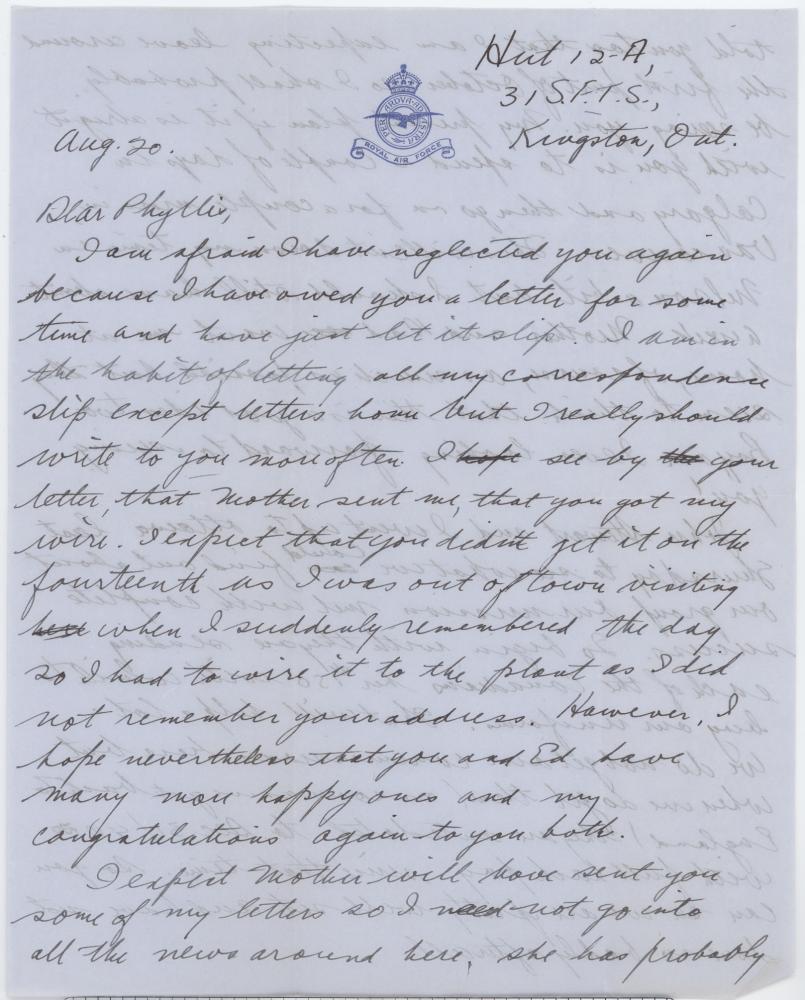 Hut 12-A,
31 S.F.T.S.,
Kingston, Ont.
PER ARDVA AD ASTRA
ROYAL AIR FORCE
Aug. 20.
Dear Phyllis,
I am afraid I have neglected you again
because I have owed you a letter for some
time and have just let it slip. I am in
the habit of letting all my correspondence
slip except letters home but I really should
write to you more often. I hope see by the your
letter, that Mother sent me, that you got my
wire. I expect that you didn't get it on the
fourteenth as I was out of town visiting
here when I suddenly remembered the day
so I had to wire it to the plant as I did
not remember your address. However, I
hope nevertheless that you and Ed have
many more happy ones and my
congratulations again to you both.
I expect Mother will have sent you
some of my letters so I need not go into
all the news around here, she has probably